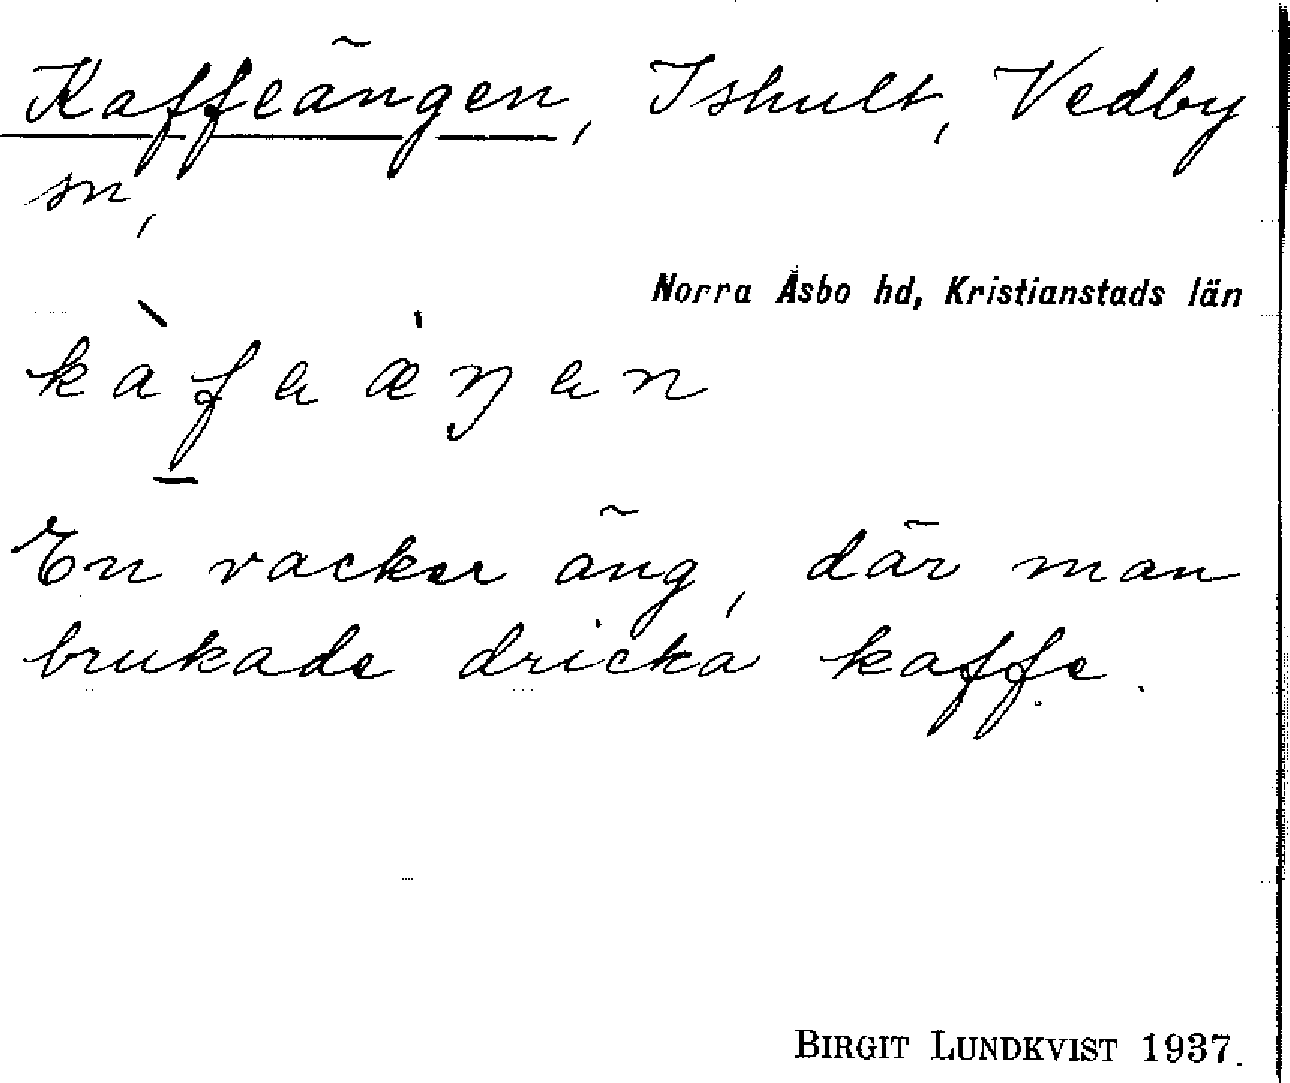 Kaffeängen, Ishult, Vedby
sn,
Norra Åsbo hd, Kristianstads län
kàfaæŋan
En vacker äng, där man
brukade dricka kaffe.
BIRGIT LUNDKVIST 1937.